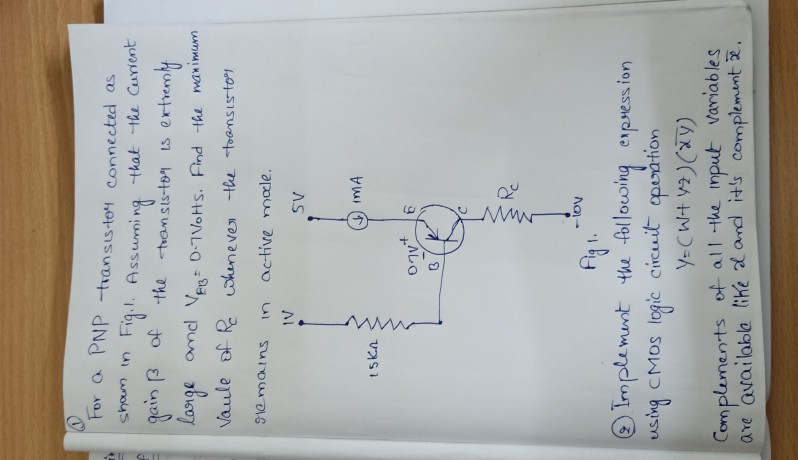 ①
For a PNP transistor connected as
shown in Fig.1. Assuming that the current
gain β of the transistor is extremly
large and VEB = 0.7Volts. Find the maximum
Vaule of Rc whenever the transistor
remains in active mode.
1V
5V
15KΩ
1MA
0.7V +
-
E
B
C
Rc
-10V
Fig 1.
② Implement the following expression
using CMOS logic circuit operation
Y=(W+VZ)(x̄y)
Complements of all the input variables
are available like x and it's complement x̄.